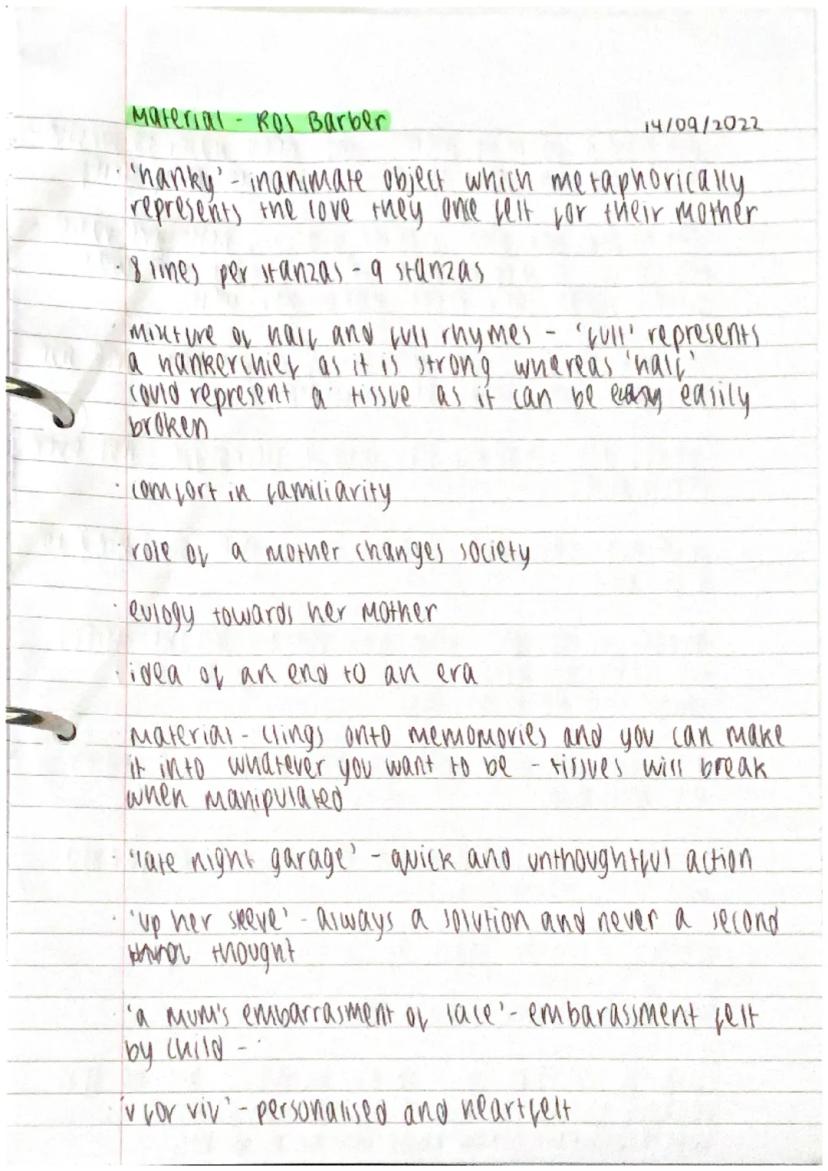 Material - Ros Barber
14/09/2022
· 'hanky' - inanimate object which metaphorically
represents the love they one felt for their mother
· 8 lines per stanzas - 9 stanzas
· mixture of half and full rhymes - 'full' represents
a hankerchief as it is strong whereas 'half'
could represent a tissue as it can be easily
broken
· comfort in familiarity
· role of a mother changes society
· eulogy towards her mother
· idea of an end to an era
· material - clings onto memomories and you can make
it into whatever you want to be - tissues will break
when manipulated
· 'late night garage' - quick and unthoughtful action
· 'up her sleeve' - always a solution and never a second
thought
· 'a mum's embarrasment of lace' - embarassment felt
by child -
· 'v for viv' - personalised and heartfelt